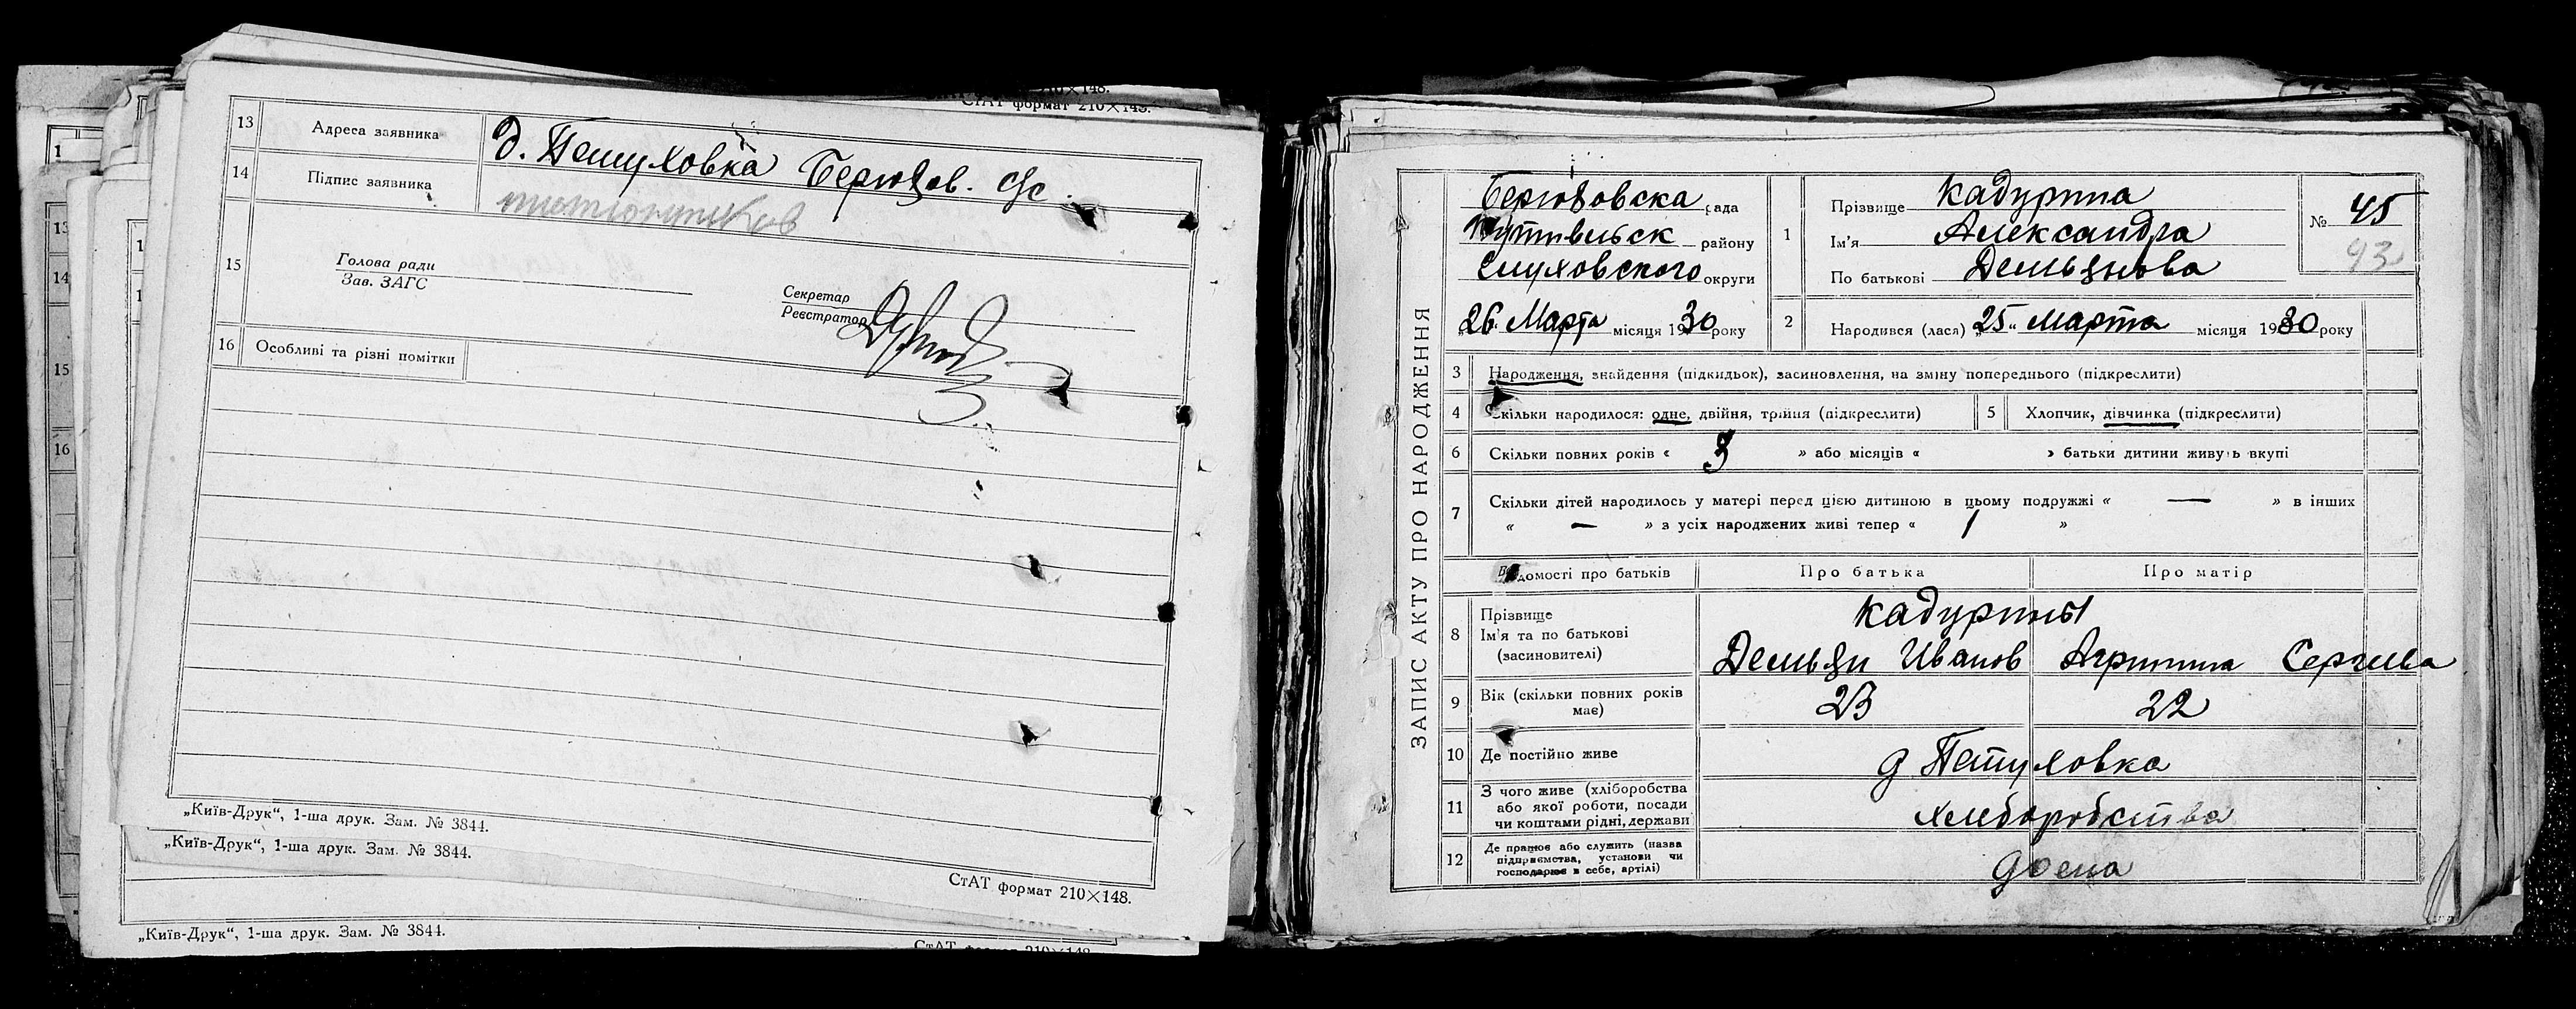 СтАТ формат 210×148.
13 Адреса заявника д. Петуховка Берюзов. с/с
14 Підпис заявника
15 Голова ради
Зав. ЗАГС
Секретар
Реєстратор
16 Особливі та різні помітки
„Київ-Друк“, 1-ша друк. Зам. № 3844.
„Київ-Друк“, 1-ша друк. Зам. № 3844.
СтАТ формат 210×148.
„Київ-Друк“, 1-ша друк. Зам. № 3844.
ЗАПИС АКТУ ПРО НАРОДЖЕННЯ
Берюзовска рада
Путивльск району
Глуховского округи
„26. Марта місяця 1930 року
1 Прізвище Кадурина
Ім'я Александра
По батькові Демьянова
№ 45
43
2 Народився (лася) „25“ Марта місяця 1930 року
3 Народження, знайдення (підкидьок), засиновлення, на зміну попереднього (підкреслити)
4 Скільки народилося: одне, двійня, трійня (підкреслити)
5 Хлопчик, дівчинка (підкреслити)
6 Скільки повних років « 3 » або місяців « » батьки дитини живуть вкупі
7 Скільки дітей народилось у матері перед цією дитиною в цьому подружжі « — » в інших
« — » з усіх народжених живі тепер « 1 »
Відомості про батьків Про батька Про матір
8 Прізвище
Ім'я та по батькові
(засиновителі)
Кадурины
Демьян Иванов Агрипина Сергеева
9 Вік (скільки повних років
має)
23 22
10 Де постійно живе д Петуховка
11 З чого живе (хліборобства
або якої роботи, посади
чи коштами рідні, держави
хлеборобства
12 Де працює або служить (назва
підприємства, установи чи
господарює в себе, артілі)
дома